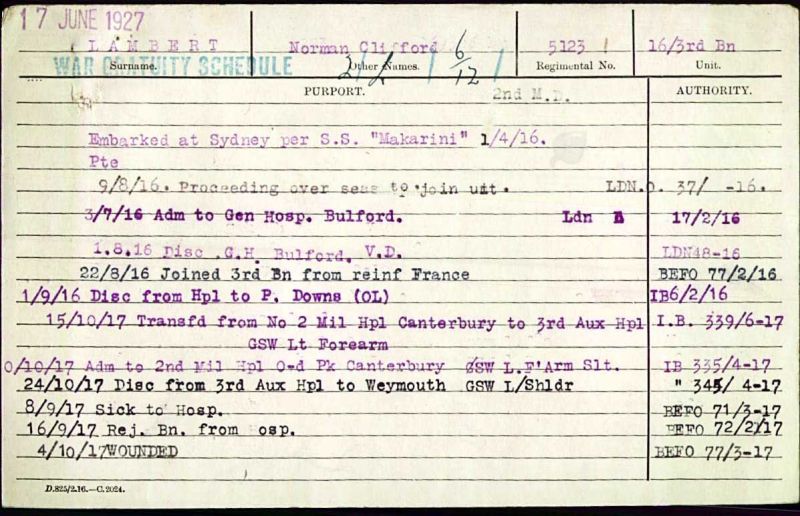 17 JUNE 1927
LAMBERT Norman Clifford 5123 16/3rd Bn
WAR GRATUITY SCHEDULE
Surname. Other Names. 6/12 Regimental No. Unit.
PURPORT. 2nd M.D. AUTHORITY.
Embarked at Sydney per S.S. "Makarini" 1/4/16.
Pte
9/8/16. Proceeding over seas to join uit. LDN.O. 37/ -16.
3/7/16 Adm to Gen Hosp. Bulford. Ldn 17/2/16
1.8.16 Disc .G.H. Bulford. V.D. LDN48-16
22/8/16 Joined 3rd Bn from reinf France BEFO 77/2/16
1/9/16 Disc from Hpl to P. Downs (OL) IB6/2/16
15/10/17 Transfd from No 2 Mil Hpl Canterbury to 3rd Aux Hpl I.B. 339/6-17
GSW Lt Forearm
0/10/17 Adm to 2nd Mil Hpl O-d Pk Canterbury GSW L.F'Arm Slt. IB 335/4-17
24/10/17 Disc from 3rd Aux Hpl to Weymouth GSW L/Shldr " 345/ 4-17
8/9/17 Sick to Hosp. BEFO 71/3-17
16/9/17 Rej. Bn. from osp. BEFO 72/2/17
4/10/17WOUNDED BEFO 77/3-17
D.825/2.16.—C.2024.